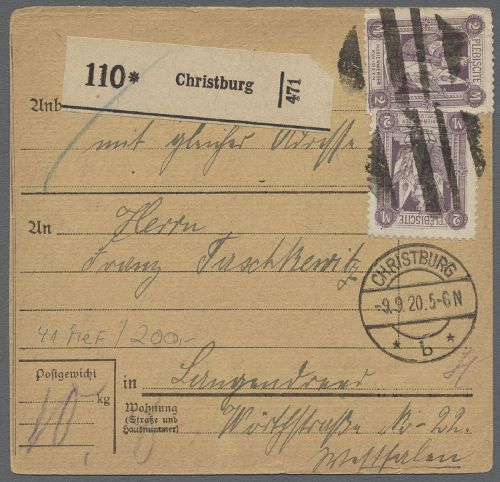 2 PLEBISCITE 2
110* Christburg 471
Anb
mit gleicher Adresse
M 2
PLEBISCITE
An Herrn
Franz Taschkewitz
CHRISTBURG
-9.9.20.5-6N
* b *
41 MeF / 200,-
Postgewicht
10 kg
in Langendreer
Wohnung
(Straße und
Hausnummer)
Wörthstraße No 22.
Westfalen